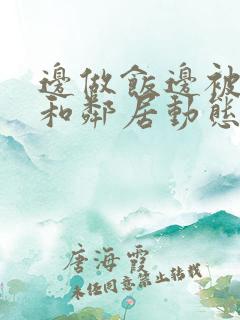 邊做飯邊被
和鄰居動態
唐海霞
未经同意禁止转载